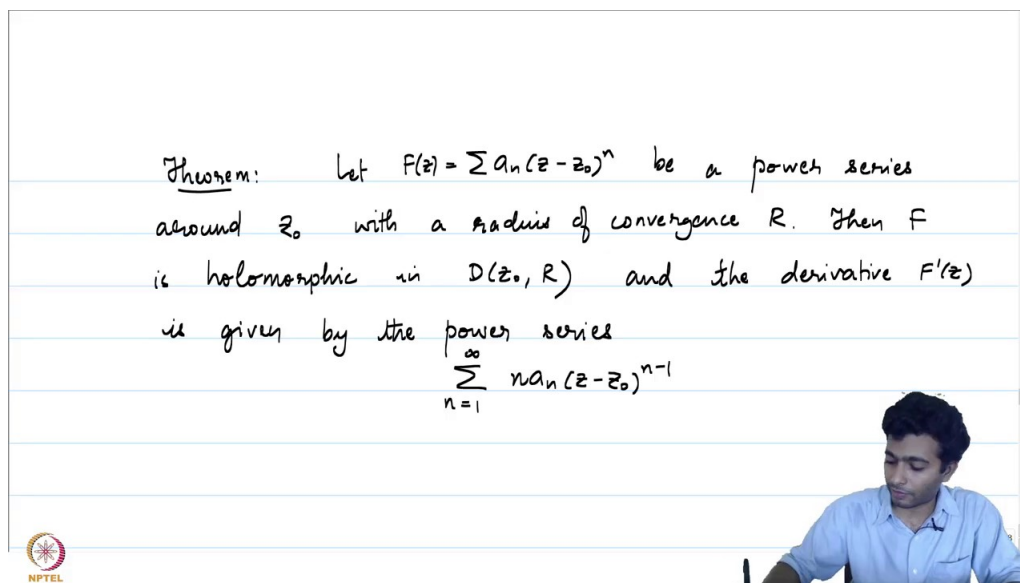 Theorem: Let F(z) = Σ aₙ(z - z₀)ⁿ be a power series
around z₀ with a radius of convergence R. Then F
is holomorphic in D(z₀, R) and the derivative F'(z)
is given by the power series
∞
Σ naₙ(z - z₀)ⁿ⁻¹
n=1
NPTEL